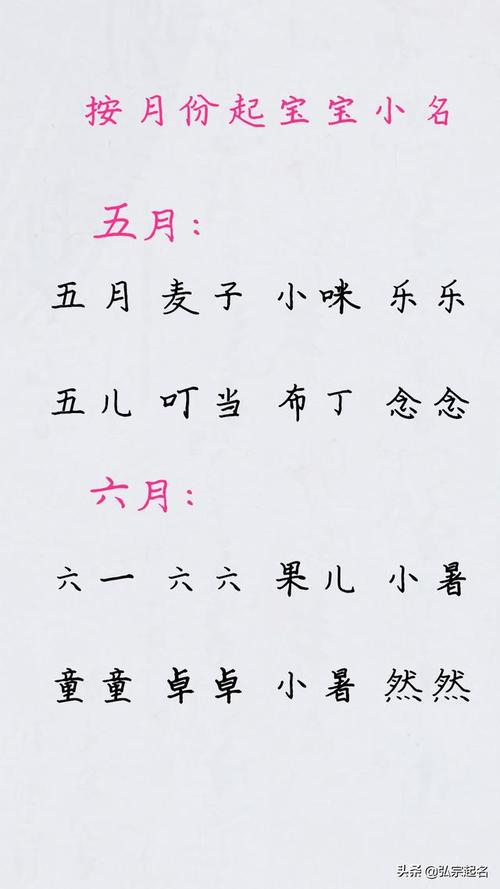 按月份起宝宝小名
五月：
五月 麦子 小咪 乐乐
五儿 叮当 布丁 念念
六月：
六一 六六 果儿 小暑
童童 卓卓 小暑 然然
头条 @弘宗起名